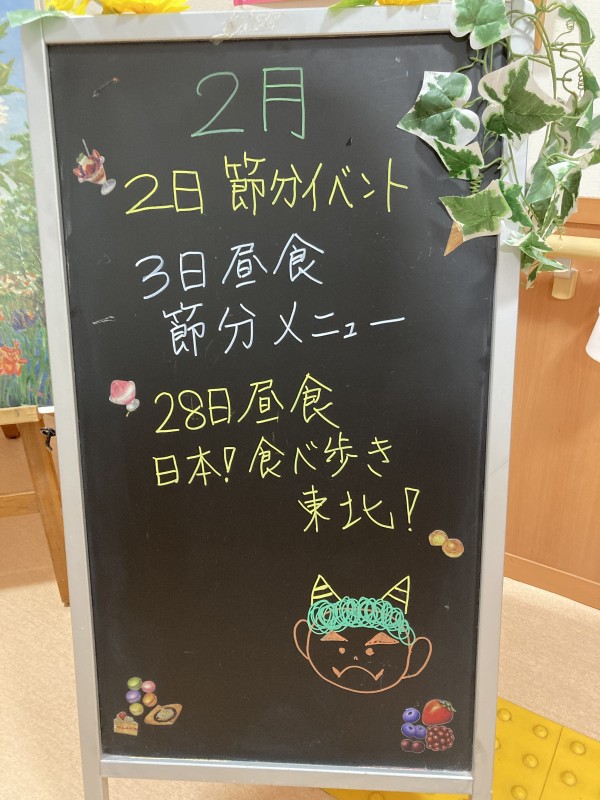 2月
2日 節分イベント
3日昼食
節分メニュー
28日昼食
日本!食べ歩き
東北!